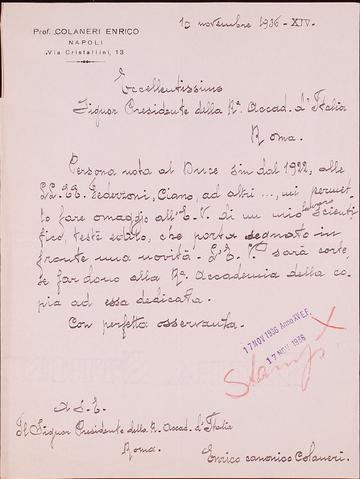 Prof. COLANERI ENRICO
NAPOLI
Via Cristallini, 13
10 novembre 1936 - XIV.
Eccellentissimo
Signor Presidente della Rª Accad. d'Italia
Roma.
Persona nota al Duce sin dal 1922, alle
LL. EE. Federzoni, Ciano, ad altri ..., mi permet-
to fare omaggio all'E. V. di un mio lavoro scienti-
fico, testè edito, che porta segnato in
fronte una novità. L'E. V. sarà corte-
se far dono alla Rª Accademia della co-
pia ad essa dedicata.
Con perfetta osservanza.
17 NOV 1936 Anno XV E.F.
17 NOV 1936
Stamp
X
A S. E.
Il Signor Presidente della R. Accad. d'Italia
Roma.
Enrico canonico Colaneri.